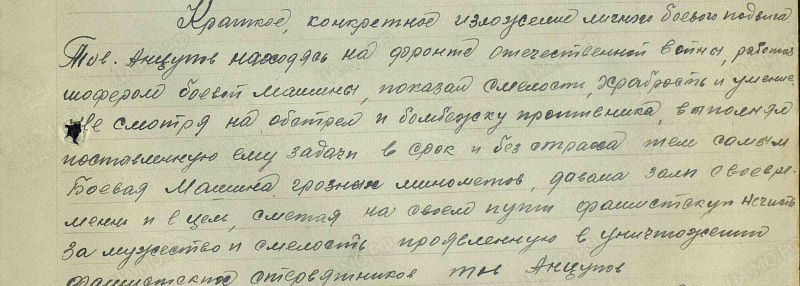 Краткое, конкретное изложение личного боевого подвига
Тов. Анцупов находясь на фронте отечественной войны, работая
шофером боевой машины, показал смелость, храбрость и умение
Не смотря на обстрел и бомбежку противника, выполнял
поставленную ему задачи в срок и без страха тем самым
Боевая машина грозных минометов, давала залп своевре-
менн и в цель, сметая на своем пути фашистскую нечисть
За мужество и смелость проявленную в уничтожении
фашистских стервятников тов Анцупов